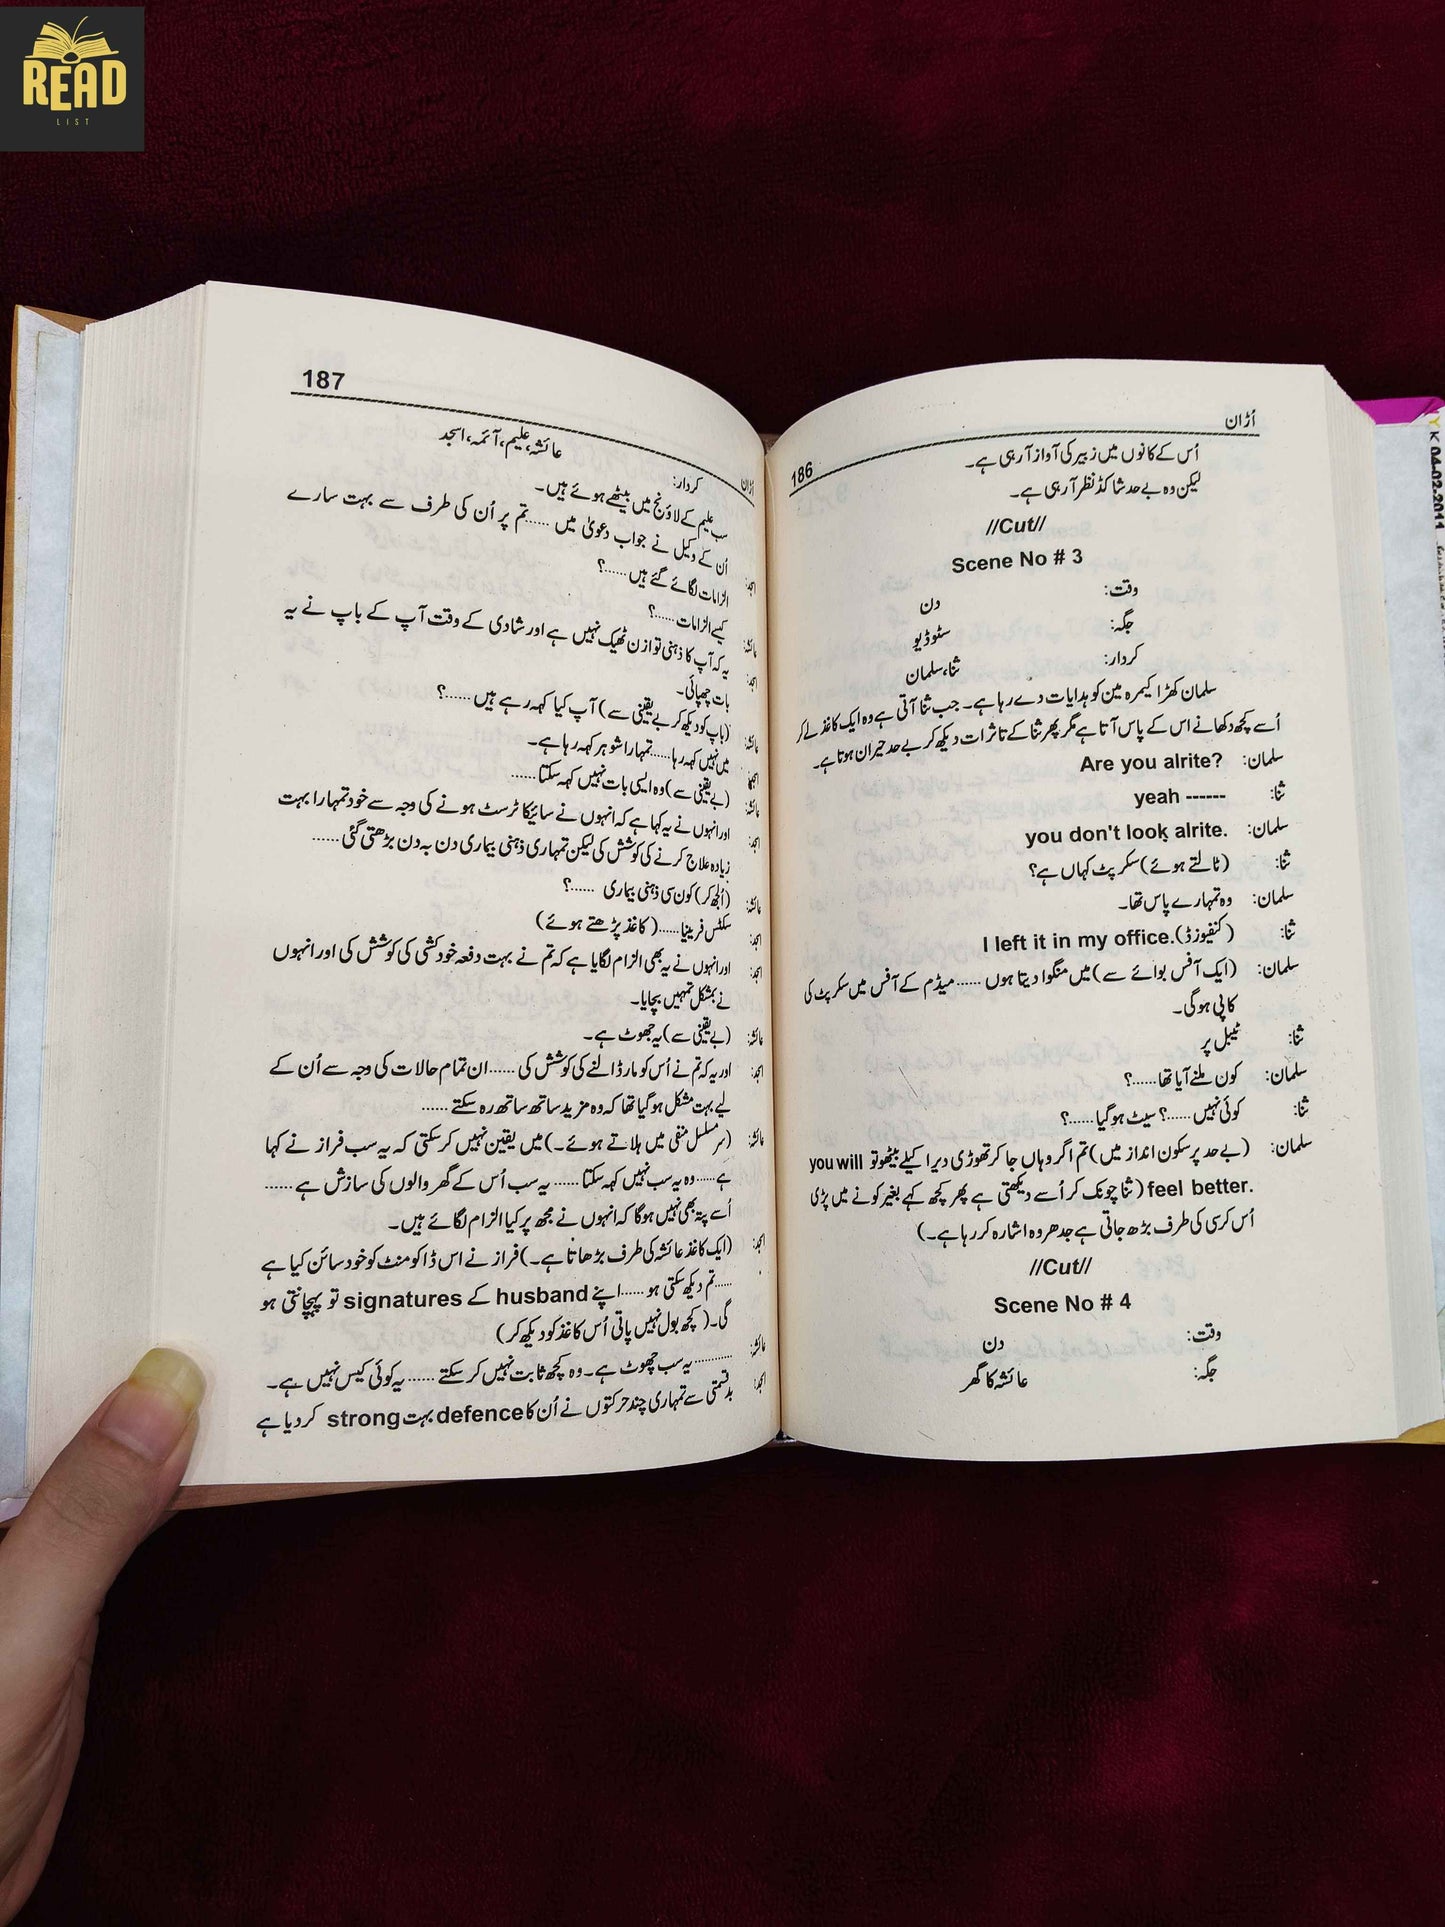 READ
LIST
اُڑان
186
اُس کے کانوں میں زبیر کی آواز آ رہی ہے۔
لیکن وہ بے حد شاکڈ نظر آ رہی ہے۔
//Cut//
Scene No # 3
وقت: دن
جگہ: سٹوڈیو
کردار: ثنا، سلمان
سلمان کھڑا کیمرہ مین کو ہدایات دے رہا ہے۔ جب ثنا آتی ہے وہ ایک کاغذ لے کر
اُسے کچھ دکھانے اس کے پاس آتا ہے مگر پھر ثنا کے تاثرات دیکھ کر بے حد حیران ہوتا ہے۔
سلمان: Are you alrite?
ثنا: yeah ------
سلمان: you don't look alrite.
ثنا: (ٹالتے ہوئے) سکرپٹ کہاں ہے؟
سلمان: وہ تمہارے پاس تھا۔
ثنا: (کنفیوزڈ) I left it in my office.
سلمان: (ایک آفس بوائے سے) میں منگوا دیتا ہوں ...... میڈم کے آفس میں سکرپٹ کی
کاپی ہوگی۔
ثنا: ٹیبل پر
سلمان: کون ملنے آیا تھا......؟
ثنا: کوئی نہیں ......؟ سیٹ ہوگیا ......؟
سلمان: (بے حد پرسکون انداز میں) تم اگر وہاں جا کر تھوڑی دیر اکیلے بیٹھو تو you will
feel better. (ثنا چونک کر اُسے دیکھتی ہے پھر کچھ کہے بغیر کونے میں پڑی
اُس کرسی کی طرف بڑھ جاتی ہے جدھر وہ اشارہ کر رہا ہے۔)
//Cut//
Scene No # 4
وقت: دن
جگہ: عائشہ کا گھر
187
اُڑان
کردار: عائشہ، علیم، آئمہ، اسجد
سب علیم کے لاؤنج میں بیٹھے ہوئے ہیں۔
اسجد: اُن کے وکیل نے جواب دعویٰ میں ...... تم پر اُن کی طرف سے بہت سارے
الزامات لگائے گئے ہیں ......؟
عائشہ: کیسے الزامات ......؟
اسجد: یہ کہ آپ کا ذہنی توازن ٹھیک نہیں ہے اور شادی کے وقت آپ کے باپ نے یہ
بات چھپائی۔
عائشہ: (باپ کو دیکھ کر بے یقینی سے) آپ کیا کہہ رہے ہیں ......؟
اسجد: میں نہیں کہہ رہا ...... تمہارا شوہر کہہ رہا ہے۔
عائشہ: (بے یقینی سے) وہ ایسی بات نہیں کہہ سکتا ......
اسجد: اور انہوں نے یہ کہا ہے کہ انہوں نے سائیکاٹرسٹ ہونے کی وجہ سے خود تمہارا بہت
زیادہ علاج کرنے کی کوشش کی لیکن تمہاری ذہنی بیماری دن بہ دن بڑھتی گئی ......
عائشہ: (اُلجھ کر) کون سی ذہنی بیماری ......؟
اسجد: سکٹس فرینیا ...... (کاغذ پڑھتے ہوئے)
اسجد: اور انہوں نے یہ بھی الزام لگایا ہے کہ تم نے بہت دفعہ خودکشی کی کوشش کی اور انہوں
نے بمشکل تمہیں بچایا۔
عائشہ: (بے یقینی سے) یہ جھوٹ ہے۔
اسجد: اور یہ کہ تم نے اُس کو مار ڈالنے کی کوشش کی ...... ان تمام حالات کی وجہ سے اُن کے
لیے بہت مشکل ہوگیا تھا کہ وہ مزید ساتھ ساتھ رہ سکتے ......
عائشہ: (سر مسلسل منفی میں ہلاتے ہوئے۔) میں یقین نہیں کر سکتی کہ یہ سب فراز نے کہا
ہے ...... وہ یہ سب نہیں کہہ سکتا ...... یہ سب اُس کے گھر والوں کی سازش ہے ......
اُسے پتہ بھی نہیں ہوگا کہ انہوں نے مجھ پر کیا الزام لگائے ہیں۔
اسجد: (ایک کاغذ عائشہ کی طرف بڑھاتا ہے۔) فراز نے اس ڈاکومنٹ کو خود سائن کیا ہے
...... تم دیکھ سکتی ہو ...... اپنے husband کے signatures تو پہچانتی ہو
گی۔ (کچھ بول نہیں پاتی اُس کاغذ کو دیکھ کر)
عائشہ: ............ یہ سب جھوٹ ہے۔ وہ کچھ ثابت نہیں کر سکتے ...... یہ کوئی کیس نہیں ہے۔
اسجد: بدقسمتی سے تمہاری چند حرکتوں نے اُن کا defence بہت strong کر دیا ہے